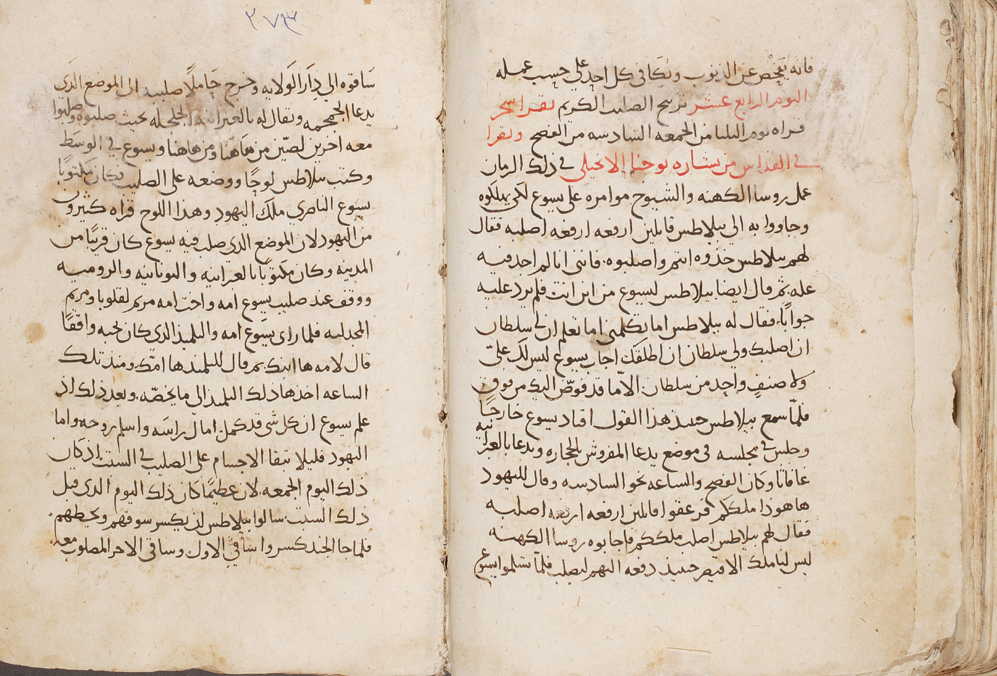 فانه يفحص عن الذنوب ويكافي كل احد على حسب عمله
اليوم الرابع عشر نرسخ الصليب الكريم يقرا سحر
قراه يوم الثلثا من الجمعه السادسه من الفصح ويقرا
في القداس من بشاره يوحنا الانجيلي في ذلك الزمان
عمل روسا الكهنه والشيوخ موامره على يسوع لكي يهلكوه
وجاووا به الى بيلاطس قايلين ارفعه ارفعه اصلبه فقال
لهم بيلاطس خذوه انتم واصلبوه فانني انا لم اجد فيه
عله ثم قال ايضا بيلاطس ليسوع من اين انت فلم يرد عليه
جوابًا فقال له بيلاطس اما تكلمني اما تعلم ان لي سلطان
ان اصلبك ولي سلطان ان اطلقك اجاب يسوع ليس لك عليّ
ولا صنفٍ واحد من سلطان الّا ما قد فوّض اليك من فوق
فلمّا سمع بيلاطس حينيذ هذا القول اقاد يسوع خارجًا
وجلس في مجلسه في موضع يدعا المفروش بالحجاره ويدعا بالعبرانيه
غافاثا وكان الفصح والساعه نحو السادسه وقال لليهود
هاهوذا ملككم فزعقوا قايلين ارفعه ارفعه اصلبه
فقال لهم بيلاطس اصلب ملككم فاجابوه روسا الكهنه
ليس لنا ملك الا قيصر حينيذ دفعه اليهم ليصلب فلمّا تسلموا يسوع
٢٧٣
ساقوه الى دار الولايه وخرج حاملًا صليبه الى الموضع الذي
يدعا الجمجمه ويقال له بالعبرانيه الجلجله بحيث صلبوه وصلبوا
معه اخرين لصّين من هاهنا ومن هاهنا ويسوع في الوسط
وكتب بيلاطس لوحًا ووضعه على الصليب وكان مكتوبًا
يسوع الناصري ملك اليهود وهذا اللوح قراه كثيرون
من اليهود لان الموضع الذي صلب فيه يسوع كان قريبًا من
المدينه وكان مكتوبًا بالعبرانيه واليونانيه والروميه
ووقف عند صليب يسوع امه واخت امه مريم لقلوبا ومريم
المجدليه فلما راى يسوع امه والتلميذ الذي كان يحبه واقفًا
قال لامه ها ابنك ثم قال للتلميذ ها امك ومنذ تلك
الساعه اخذها ذلك التلميذ الى ما يخصّه وبعد ذلك اذ
علم يسوع ان كل شي قد كمل امال راسه واسلم روحه واما
اليهود فليلا تبقا الاجسام على الصليب في السبت اذ كان
ذلك اليوم الجمعه لان عظيمًا كان ذلك اليوم الذي قبل
ذلك السبت سالوا بيلاطس ان يكسر سوقهم ويحطهم
فلما جا الجند كسروا ساقي الاول وساقي الاخر المصلوب معه